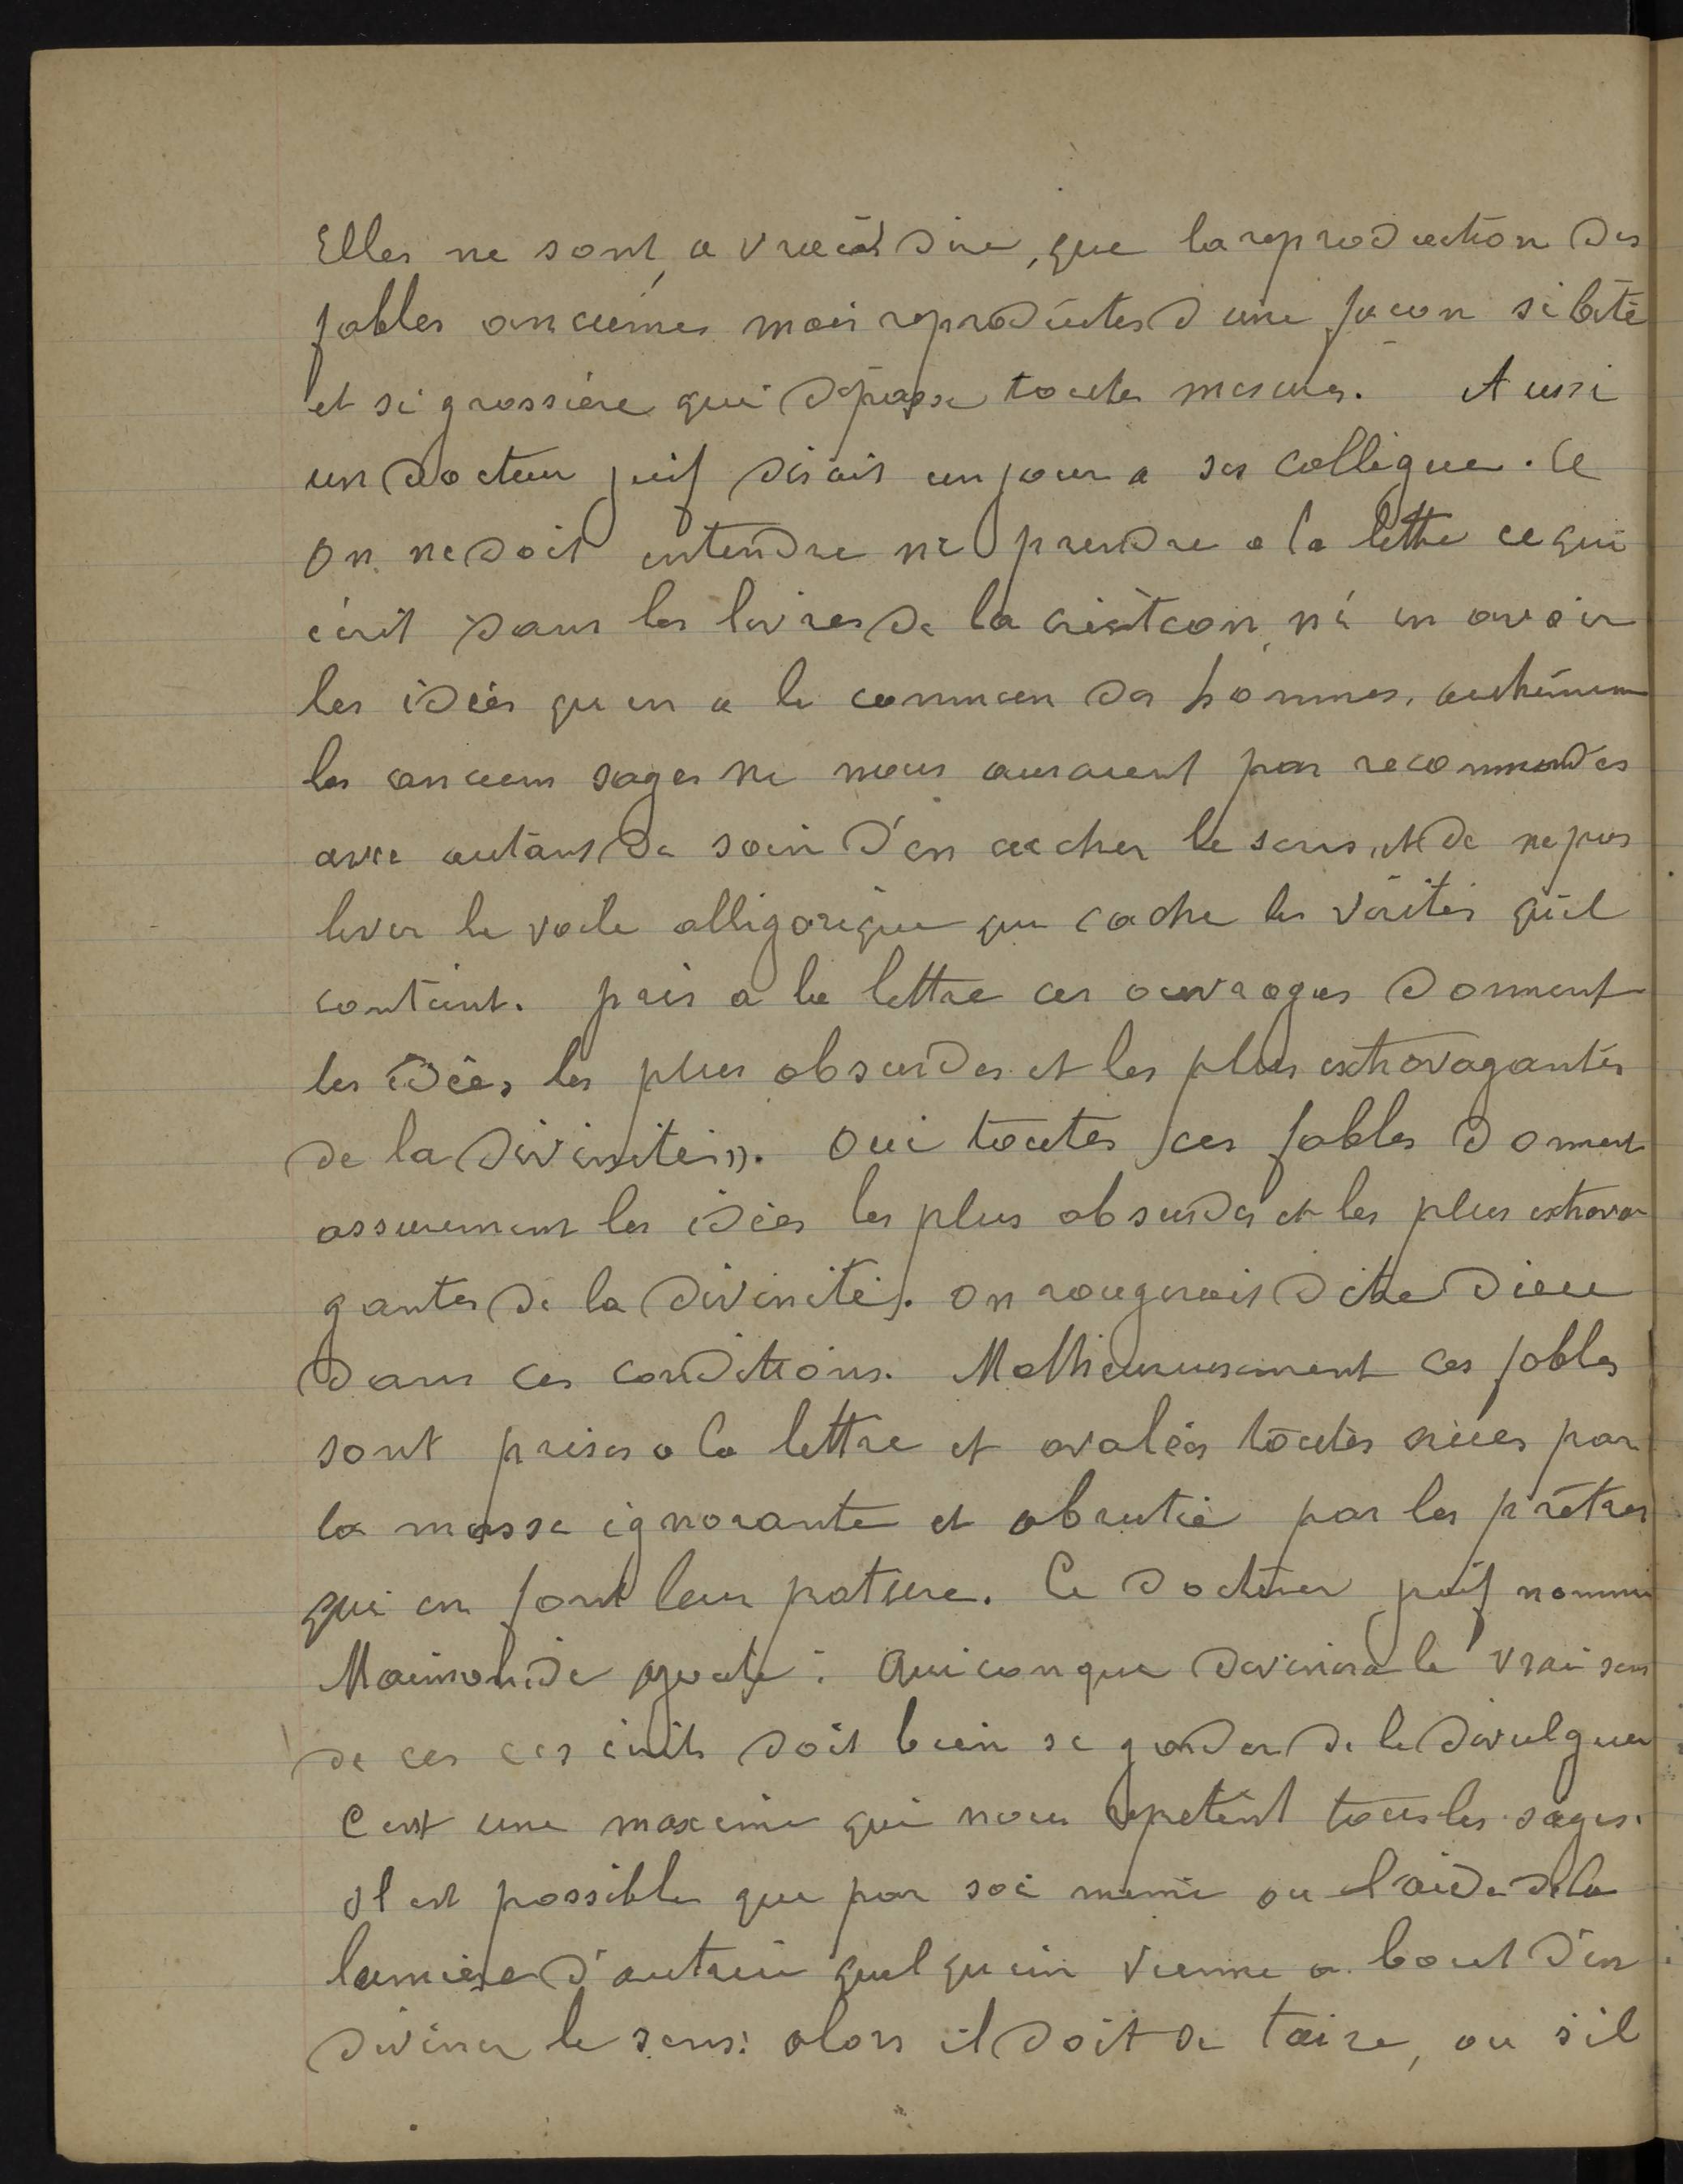 Elles ne sont, a vraiai dire, que la reproduction des
fables anciennes mais reproduites d une facon si bête
et si grossière qui dépasse toutes mesures. Aussi
un docteur juif disait un jour a ses collègue. Ce
on ne doit entendre ni prendre a la lettre ce qui
écrit dans les livres de la création, ni en avoir
les idées qu en a le commun des hommes, autrement
les anciens sages ne nous auraient pas recommandés
avec autant de soin d'en cacher le sens, et de ne pas
lever le voile alligorique qui cache les vérités qu'il
contient. pris a la lettre ces ouvrages donnent
les idées les plus absurdes et les plus extravagantes
de la divinité ». Oui toutes ces fables donnent
assurement les idées les plus absurdes et les plus extrava
gantes de la divinité). On rougirais d'être Dieu
dans ces conditions. Malhieureusement ces fables
sont prises a la lettre et avalées toutes crues par
la masse ignorante et abrutie par les prêtres
qui en font leur pature. Ce docteur juif nommé
Maimonide ajoute: Quiconque devinera le vrai sens
de ces ces écrits doit bien se garder de le divulguer
C est une maxime qui nous repetent tous les sages.
Il est possible que par soi meme ou l'aide de la
lumière d'autrui quelqu'un vienne a bout d'en
deviner le sens: alors il doit se taire, ou s'il